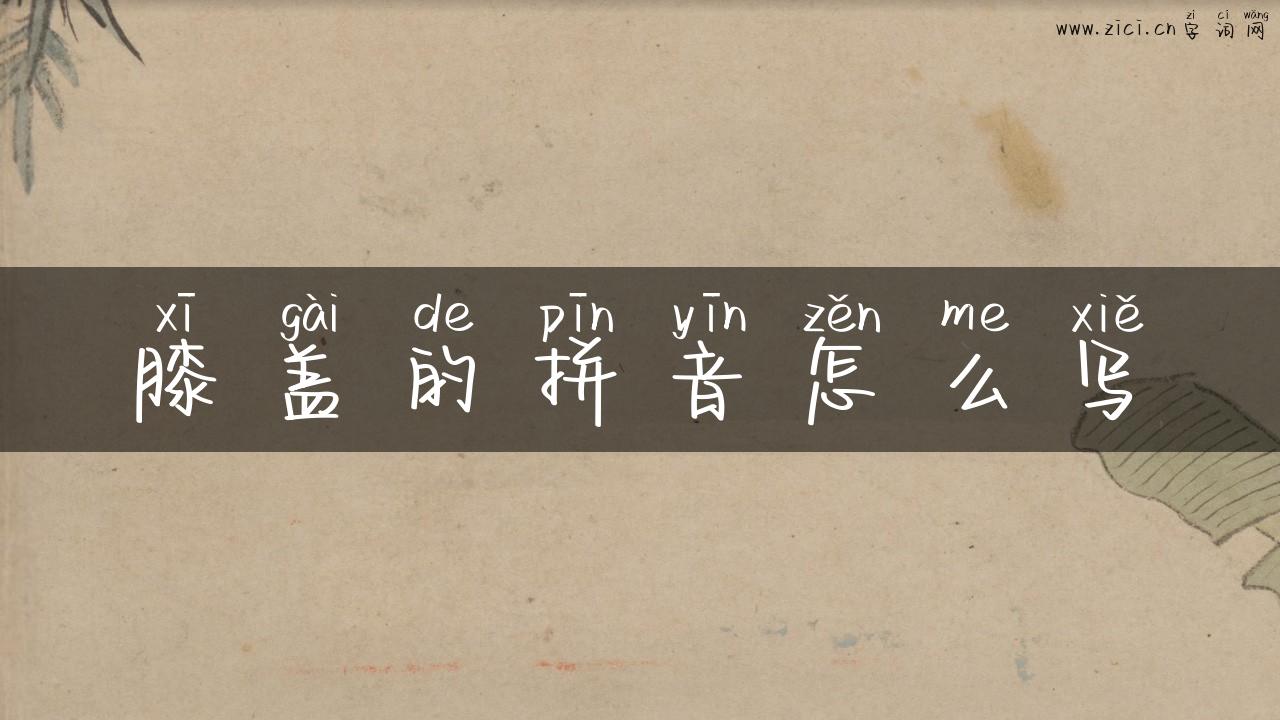 zì cí wǎng
www.zici.cn 字词网
xī gài de pīn yīn zěn me xiě
膝盖的拼音怎么写